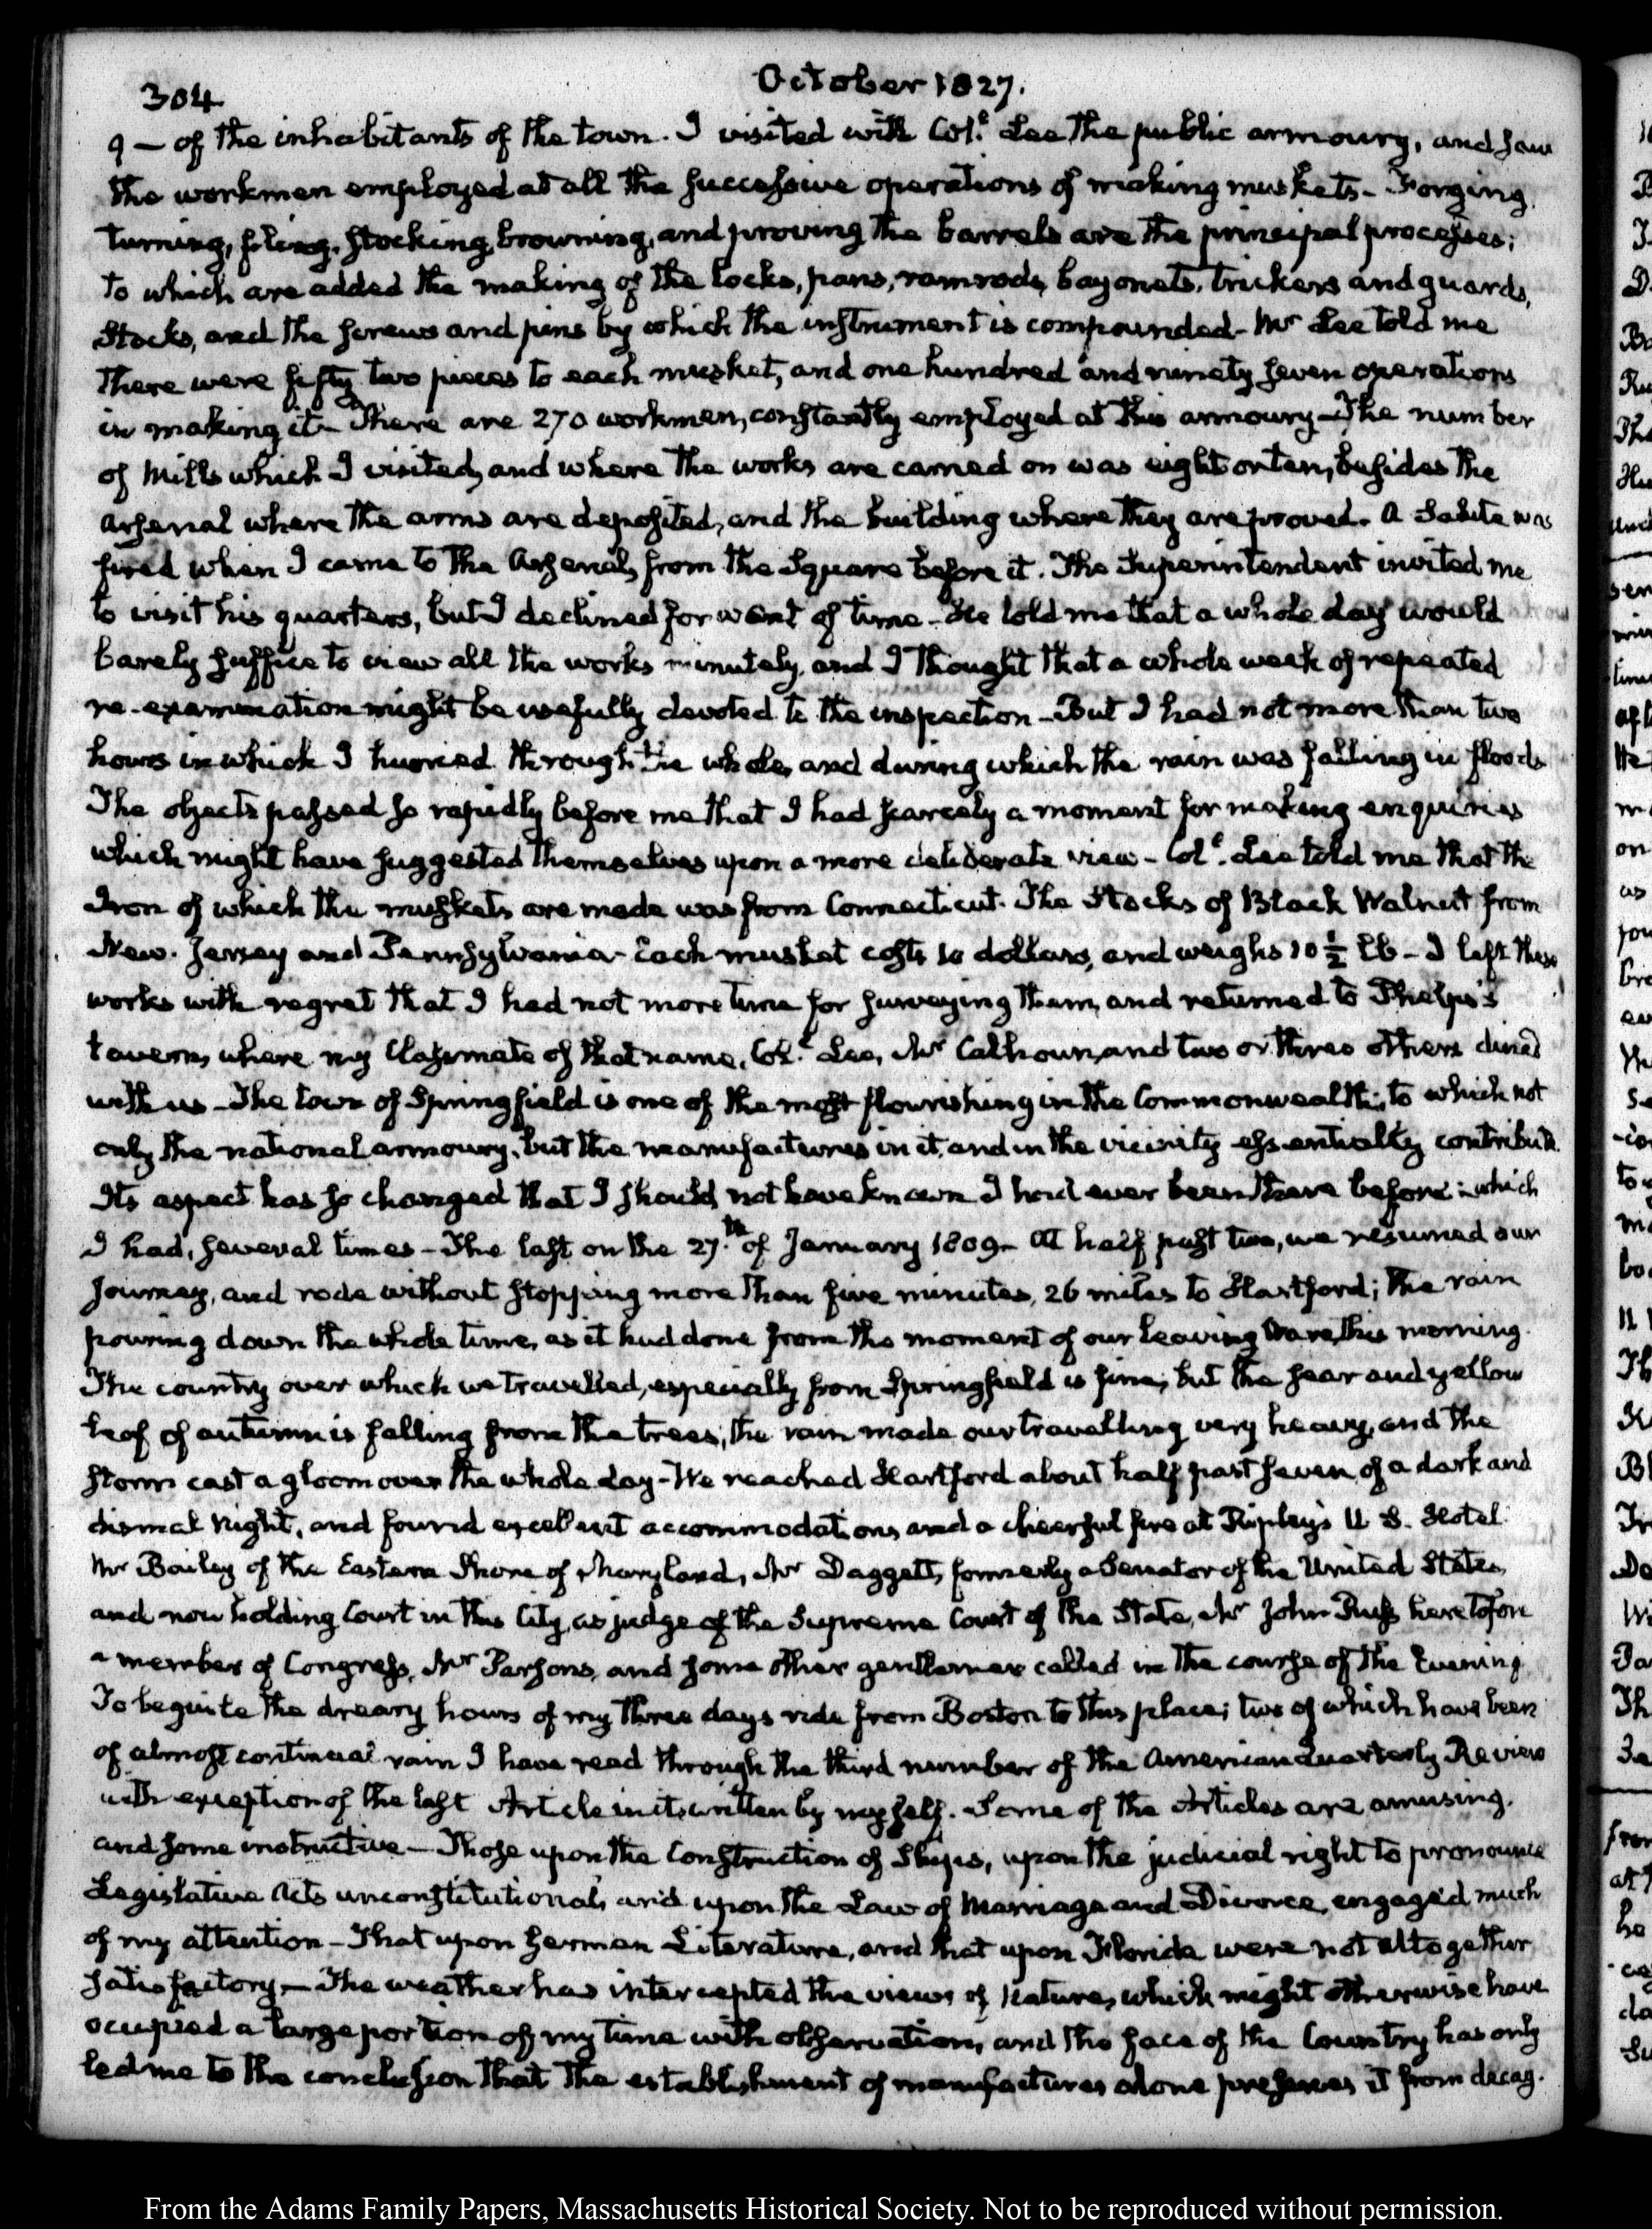 304
October 1827.
9 — of the inhabitants of the town. I visited with Colᵉ. Lee the public armoury, and saw
the workmen employed at all the successive operations of making muskets — Forging,
turning, filing, stocking, browning, and proving the barrels are the principal processes;
to which are added the making of the locks, pans, ramrods, bayonets, trickers and guards,
Stocks, and the screws and pins by which the instrument is compounded — Mr Lee told me
there were fifty two pieces to each musket, and one hundred and ninety seven operations
in making it — There are 270 workmen, constantly employed at this armoury — The number
of Mills which I visited, and where the works are carried on was eight or ten, besides the
arsenal where the arms are deposited, and the building where they are proved. A Salute was
fired when I came to the Arsenal, from the Square before it. The Superintendent invited me
to visit his quarters, but I declined for want of time — He told me that a whole day would
barely suffice to view all the works minutely, and I thought that a whole week of repeated
re-examination might be usefully devoted to the inspection — But I had not more than two
hours in which I hurried through the whole, and during which the rain was falling in floods
The objects passed so rapidly before me that I had scarcely a moment for making enquiries
which might have suggested themselves upon a more deliberate view — Colᵉ. Lee told me that the
Iron of which the muskets are made was from Connecticut. The Stocks of Black Walnut from
New-Jersey and Pennsylvania — Each musket costs 10 dollars, and weighs 10 ½ lb — I left these
works with regret that I had not more time for surveying them, and returned to Phelps's
tavern, where my Classmate of that name, Colᵉ. Lee, Mr Calhoun, and two or three others dined
with us — The town of Springfield is one of the most flourishing in the Commonwealth; to which not
only the national armoury, but the manufactures in it, and in the vicinity essentially contribute.
Its aspect has so changed that I should not have known I had ever been there before: which
I had, several times — The last on the 27.th of January 1809 — At half past two, we resumed our
journey, and rode without stopping more than five minutes, 26 miles to Hartford; the rain
pouring down the whole time, as it had done from the moment of our leaving Ware this morning.
The country over which we travelled, especially from Springfield is fine; but the sear and yellow
leaf of autumn is falling from the trees; the rain made our travelling very heavy, and the
storm cast a gloom over the whole day — We reached Hartford about half past seven of a dark and
dismal night, and found excellent accommodations and a cheerful fire at Ripley's U. S. Hotel.
Mr Bailey of the Eastern Shore of Maryland, Mr Daggett, formerly a Senator of the United States,
and now holding Court in this City, as judge of the Supreme Court of the State, Mr John Russ heretofore
a member of Congress, Mr Parsons, and some other gentlemen called in the course of the Evening.
To beguile the dreary hours of my three days ride from Boston to this place; two of which have been
of almost continual rain I have read through the third number of the American Quarterly Review
with exception of the last Article in it, written by myself. Some of the Articles are amusing,
and some instructive — Those upon the Construction of Ships, upon the judicial right to pronounce
Legislative Acts unconstitutional, and upon the Law of Marriage and Divorce, engaged much
of my attention — That upon German Literature, and that upon Florida were not altogether
satisfactory — The weather has intercepted the views of Nature, which might otherwise have
ocupied a large portion of my time with observation, and the face of the Country has only
led me to the conclusion that the establishment of manufactures alone preserves it from decay.
From the Adams Family Papers, Massachusetts Historical Society. Not to be reproduced without permission.